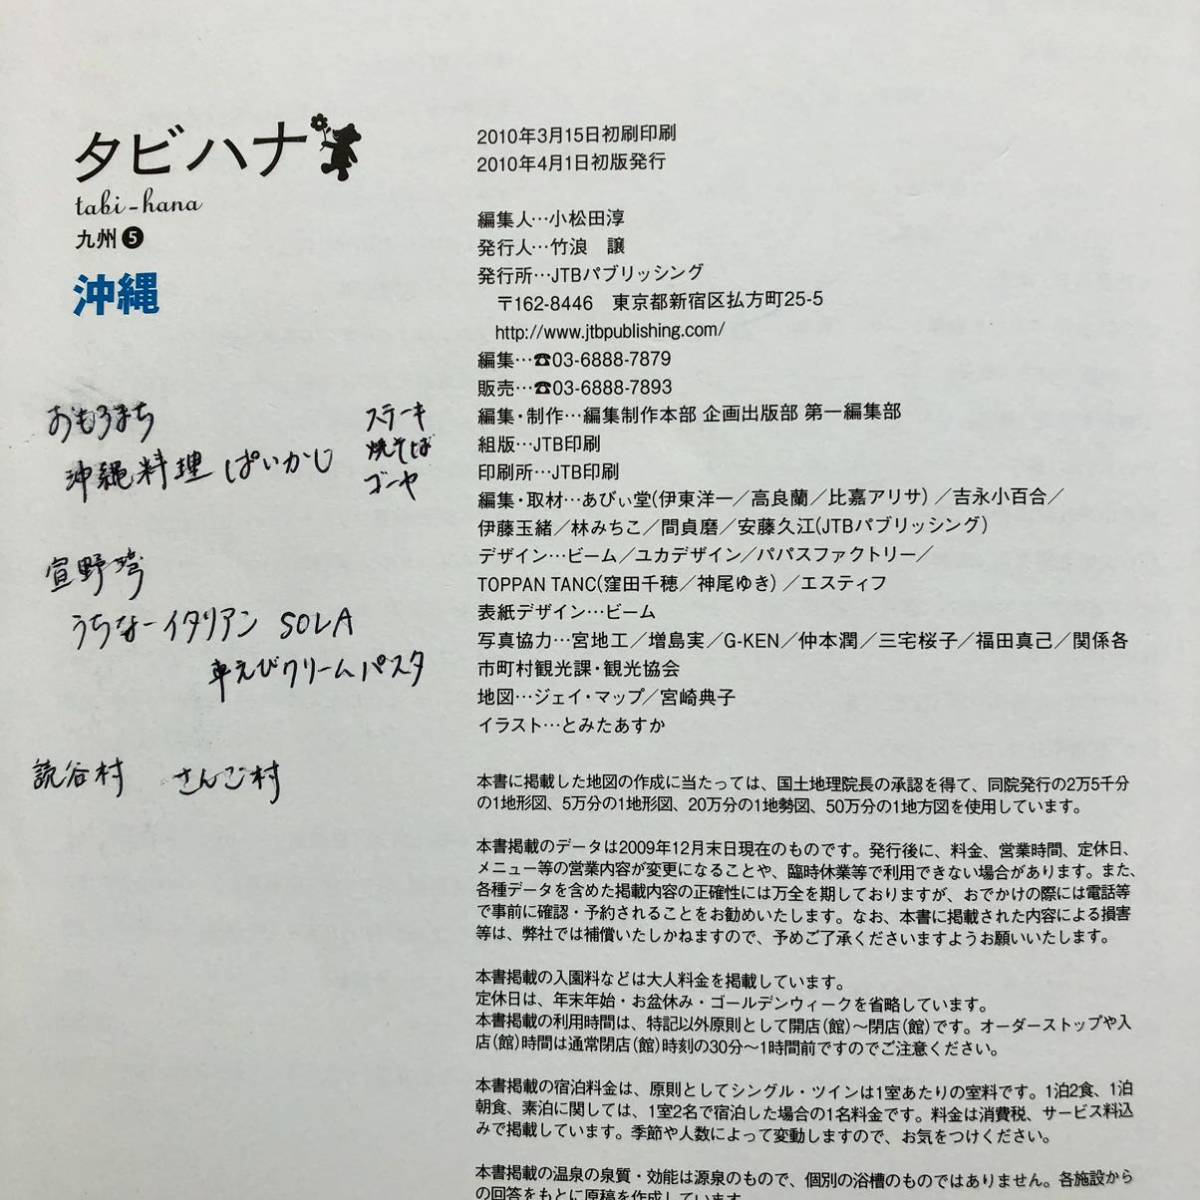 タビハナ
tabi-hana
九州❺
沖縄
おもろまち
沖縄料理 ぱいかじ
ステーキ
焼そば
ゴーヤ
宜野湾
うちなーイタリアン SOLA
車えびクリームパスタ
読谷村 さんご村
2010年3月15日初刷印刷
2010年4月1日初版発行
編集人…小松田淳
発行人…竹浪 譲
発行所…JTBパブリッシング
〒162-8446 東京都新宿区払方町25-5
http://www.jtbpublishing.com/
編集…☎03-6888-7879
販売…☎03-6888-7893
編集・制作…編集制作本部 企画出版部 第一編集部
組版…JTB印刷
印刷所…JTB印刷
編集・取材…あびぃ堂(伊東洋一／高良蘭／比嘉アリサ)／吉永小百合／
伊藤玉緒／林みちこ／間貞麿／安藤久江(JTBパブリッシング)
デザイン…ビーム／ユカデザイン／パパスファクトリー／
TOPPAN TANC(窪田千穂／神尾ゆき)／エスティフ
表紙デザイン…ビーム
写真協力…宮地工／増島実／G-KEN／仲本潤／三宅桜子／福田真己／関係各
市町村観光課・観光協会
地図…ジェイ・マップ／宮崎典子
イラスト…とみたあすか
本書に掲載した地図の作成に当たっては、国土地理院長の承認を得て、同院発行の2万5千分
の1地形図、5万分の1地形図、20万分の1地勢図、50万分の1地方図を使用しています。
本書掲載のデータは2009年12月末日現在のものです。発行後に、料金、営業時間、定休日、
メニュー等の営業内容が変更になることや、臨時休業等で利用できない場合があります。また、
各種データを含めた掲載内容の正確性には万全を期しておりますが、おでかけの際には電話等
で事前に確認・予約されることをお勧めいたします。なお、本書に掲載された内容による損害
等は、弊社では補償いたしかねますので、予めご了承くださいますようお願いいたします。
本書掲載の入園料などは大人料金を掲載しています。
定休日は、年末年始・お盆休み・ゴールデンウィークを省略しています。
本書掲載の利用時間は、特記以外原則として開店(館)～閉店(館)です。オーダーストップや入
店(館)時間は通常閉店(館)時刻の30分～1時間前ですのでご注意ください。
本書掲載の宿泊料金は、原則としてシングル・ツインは1室あたりの室料です。1泊2食、1泊
朝食、素泊に関しては、1室2名で宿泊した場合の1名料金です。料金は消費税、サービス料込
みで掲載しています。季節や人数によって変動しますので、お気をつけください。
本書掲載の温泉の泉質・効能は源泉のもので、個別の浴槽のものではありません。各施設から
の回答をもとに原稿を作成しています。